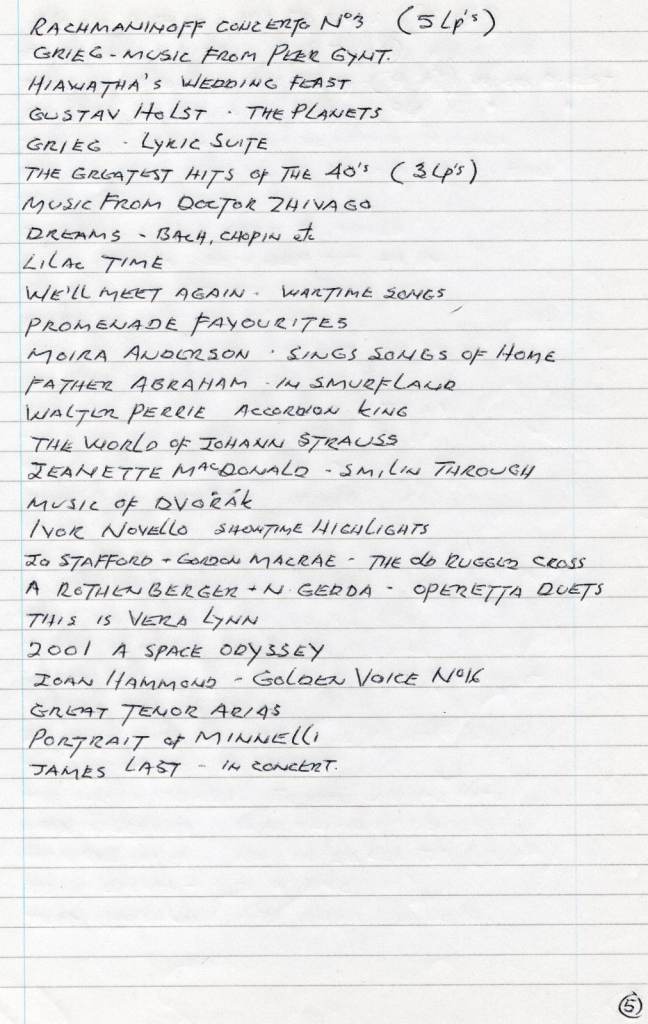 RACHMANINOFF CONCERTO No 3 (5 Lp's)
GRIEG - MUSIC FROM PEER GYNT.
HIAWATHA'S WEDDING FEAST
GUSTAV HOLST - THE PLANETS
GRIEG - LYRIC SUITE
THE GREATEST HITS of THE 40's (3 Lp's)
MUSIC FROM DOCTOR ZHIVAGO
DREAMS - BACH, CHOPIN etc
LILAC TIME
WE'LL MEET AGAIN - WARTIME SONGS
PROMENADE FAVOURITES
MOIRA ANDERSON - SINGS SONGS OF HOME
FATHER ABRAHAM - IN SMURFLAND
WALTER PERRIE ACCORDION KING
THE WORLD OF JOHANN STRAUSS
JEANETTE MACDONALD - SMILIN THROUGH
MUSIC OF DVOŘÁK
IVOR NOVELLO SHOWTIME HIGHLIGHTS
JO STAFFORD + GORDON MACRAE - THE old RUGGED CROSS
A ROTHENBERGER + N. GEDDA - OPERETTA DUETS
THIS IS VERA LYNN
2001 A SPACE ODYSSEY
JOAN HAMMOND - GOLDEN VOICE No 16
GREAT TENOR ARIAS
PORTRAIT of MINNELLI
JAMES LAST - IN CONCERT.
5